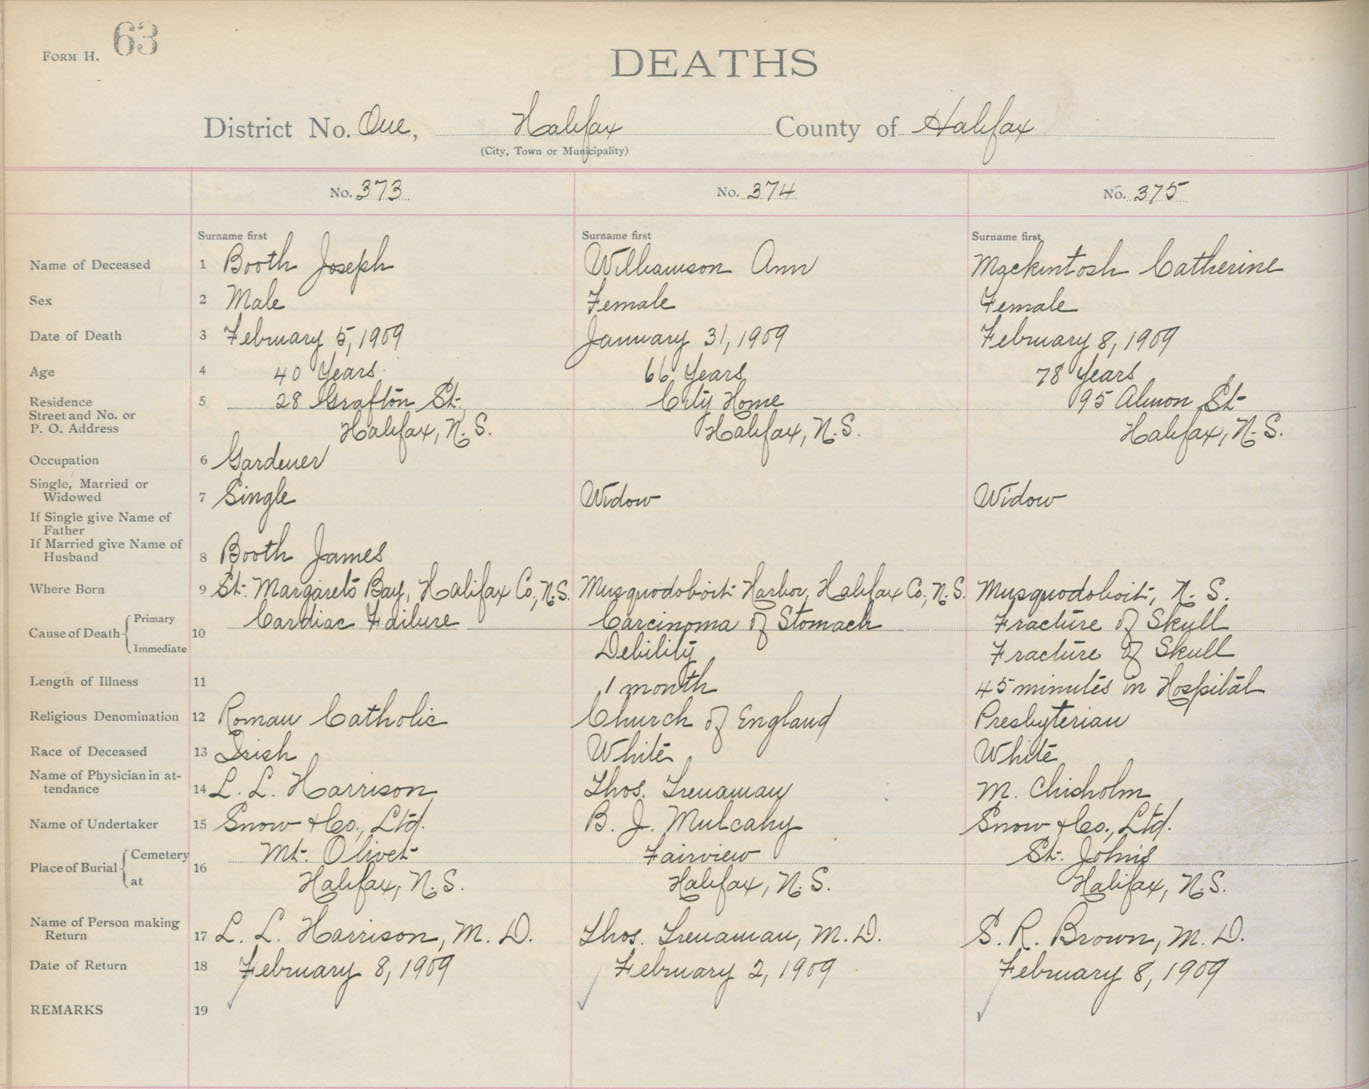 FORM H. 63
DEATHS
District No. One, Halifax County of Halifax
(City, Town or Municipality)
No. 373 No. 374 No. 375
Surname first Surname first Surname first
Name of Deceased 1 Booth Joseph Williamson Ann Mackintosh Catherine
Sex 2 Male Female Female
Date of Death 3 February 5, 1909 January 31, 1909 February 8, 1909
Age 4 40 Years 66 Years 78 Years
Residence 5 28 Grafton St. City Home 95 Almon St
Street and No. or
P. O. Address Halifax, N.S. Halifax, N.S. Halifax, N.S.
Occupation 6 Gardener
Single, Married or
Widowed 7 Single Widow Widow
If Single give Name of
Father
If Married give Name of
Husband 8 Booth James
Where Born 9 St. Margarets Bay, Halifax Co, N.S. Musquodoboit Harbor, Halifax Co, N.S. Musquodoboit, N.S.
Primary Cardiac Failure Carcinoma of Stomach Fracture of Skull
Cause of Death 10
Immediate Debility Fracture of Skull
Length of Illness 11 1 month 45 minutes in Hospital
Religious Denomination 12 Roman Catholic Church of England Presbyterian
Race of Deceased 13 Irish White White
Name of Physician in at-
tendance 14 L. L. Harrison Thos. Trenaman M. Chisholm
Name of Undertaker 15 Snow & Co., Ltd. B. J. Mulcahy Snow & Co., Ltd.
Cemetery Mt. Olivet Fairview St. John's
Place of Burial 16
at Halifax, N.S. Halifax, N.S. Halifax, N.S.
Name of Person making
Return 17 L. L. Harrison, M.D. Thos. Trenaman, M.D. S. R. Brown, M.D.
Date of Return 18 February 8, 1909 February 2, 1909 February 8, 1909
REMARKS 19